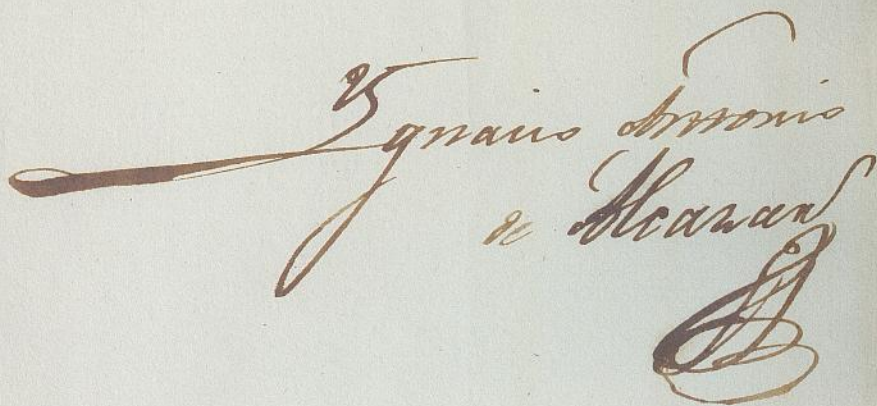 Ygnacio Antonio
de Alcaraz